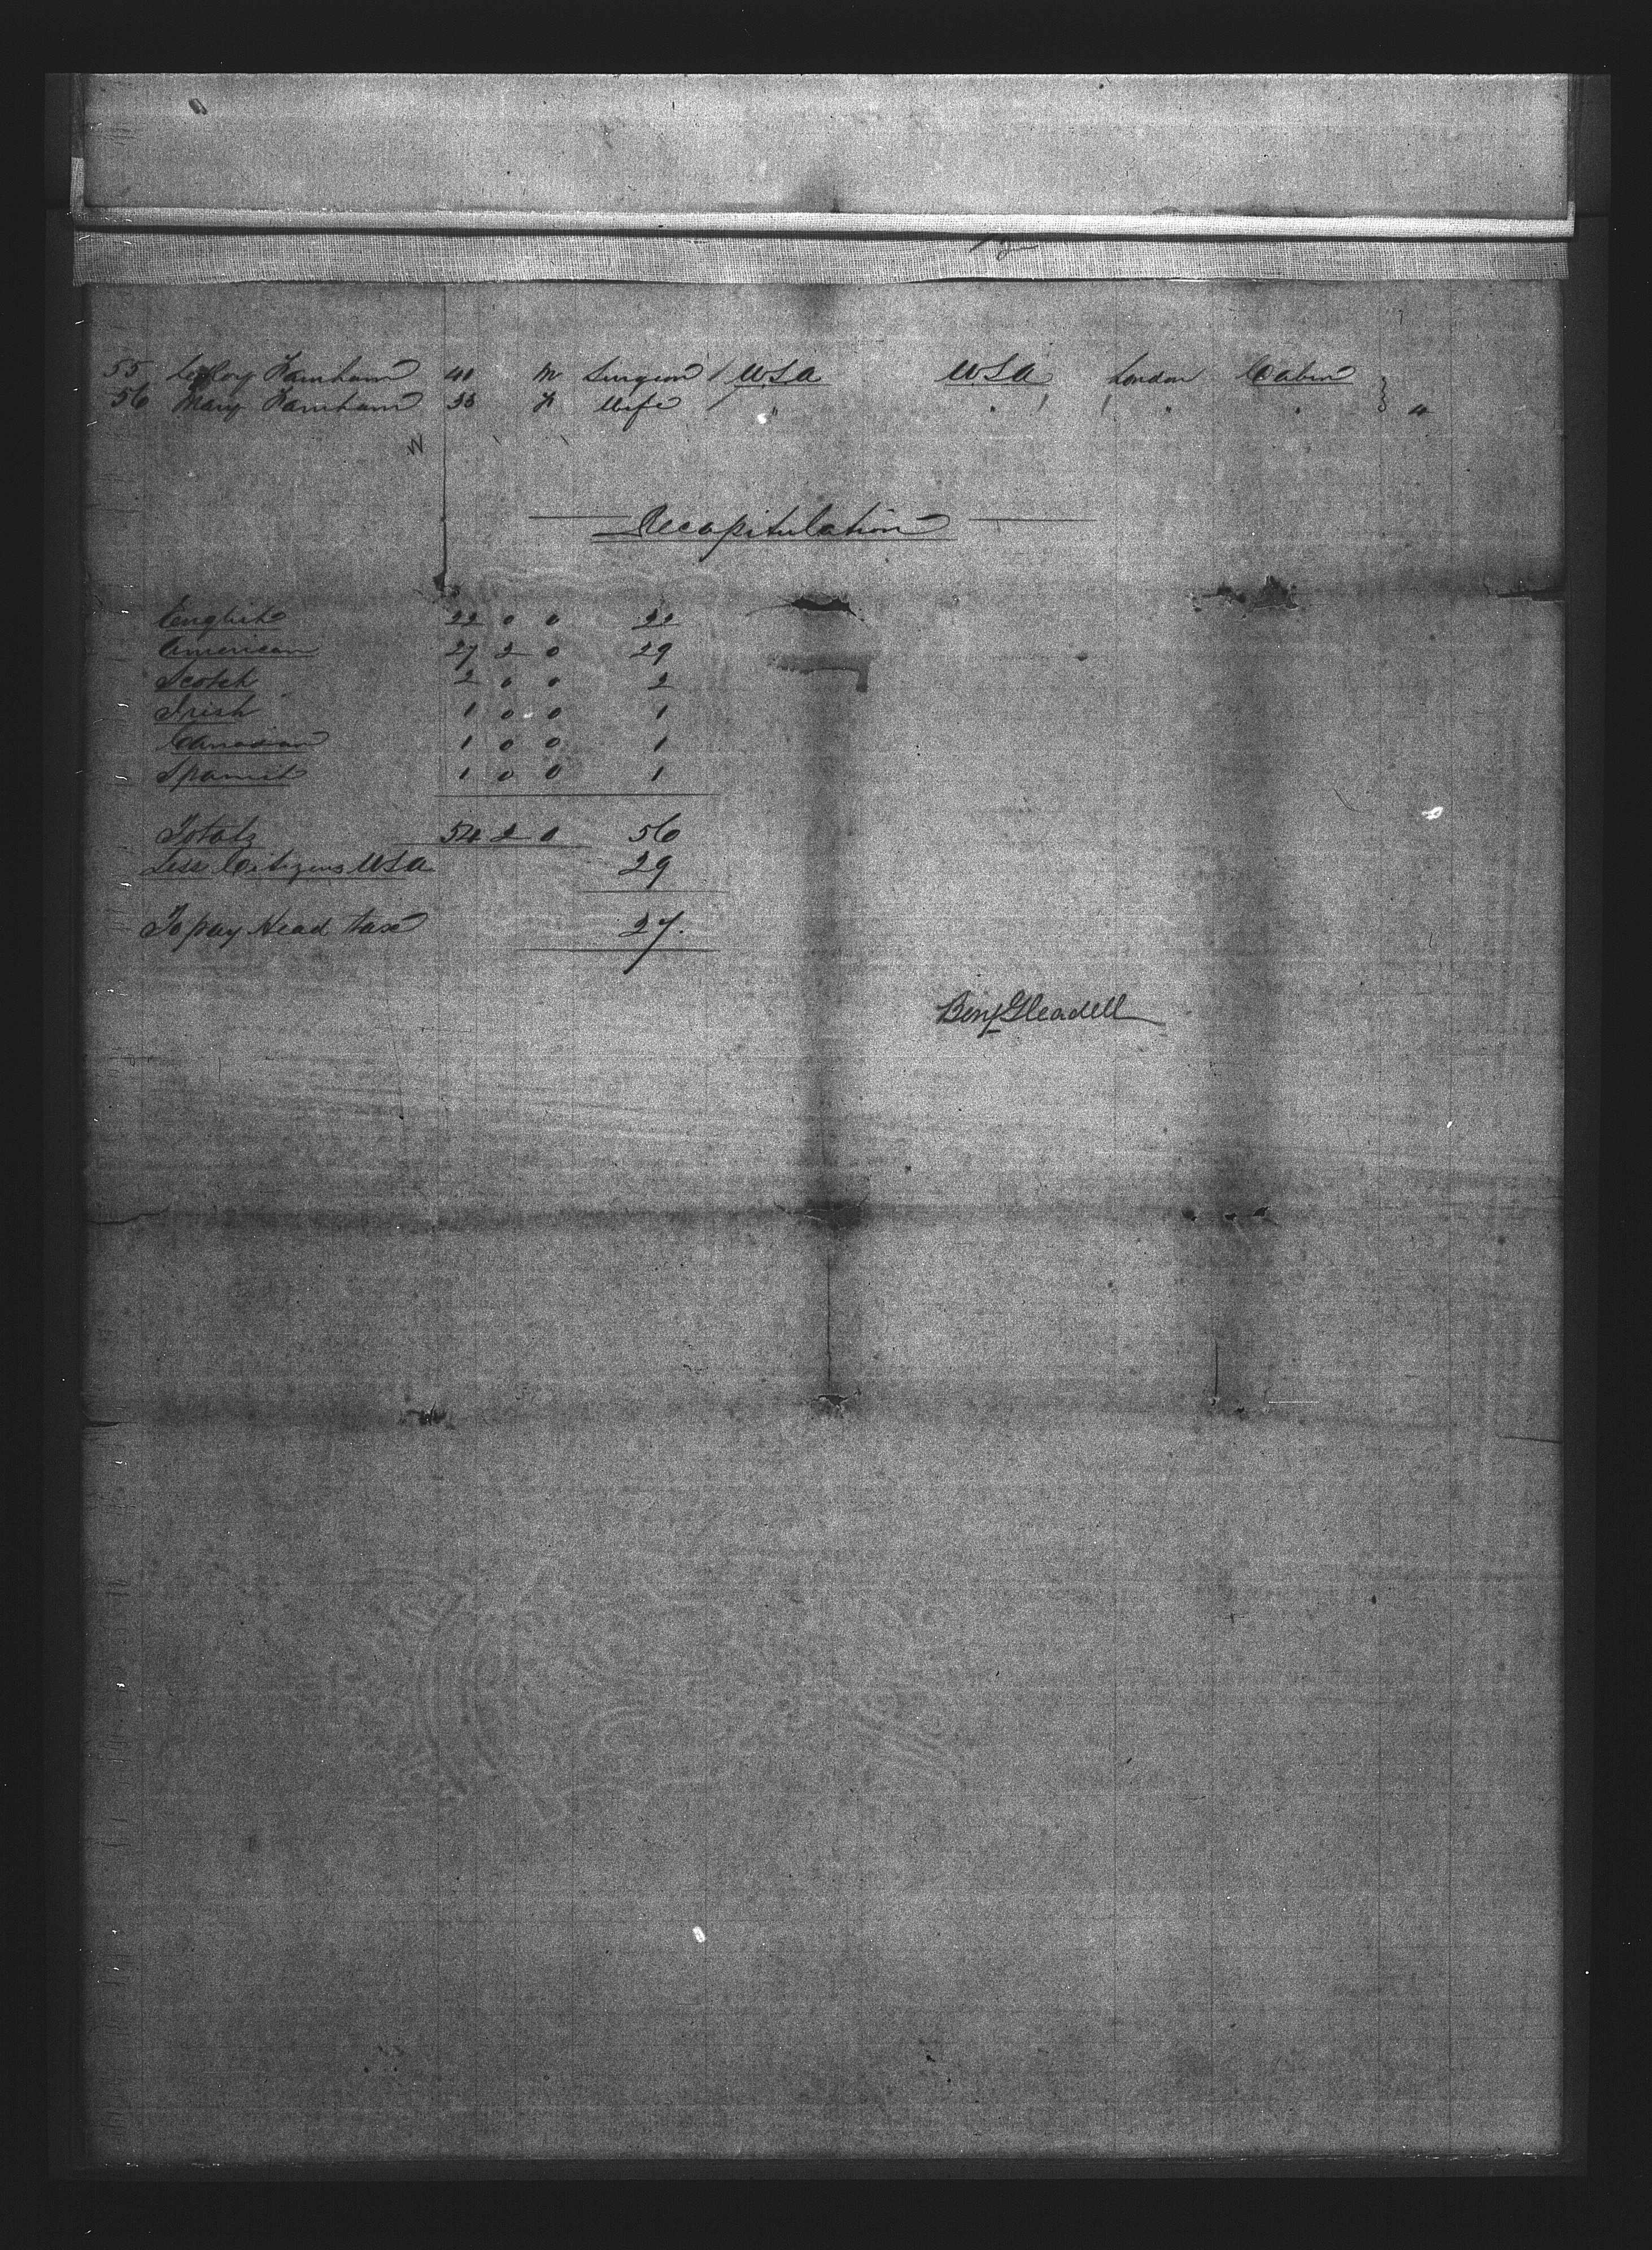 55 LeRoy Farnham 41 M Surgeon / USA USA London Cabin
56 Mary Farnham 33 F Wife / " " " " } 4
N
Recapitulation
English 22 0 0 22
American 27 2 0 29
Scotch 2 0 0 2
Irish 1 0 0 1
Canadian 1 0 0 1
Spanish 1 0 0 1
Totals 54 2 0 56
Less Citizens USA 29
To pay Head tax 27.
Benj Gleadell